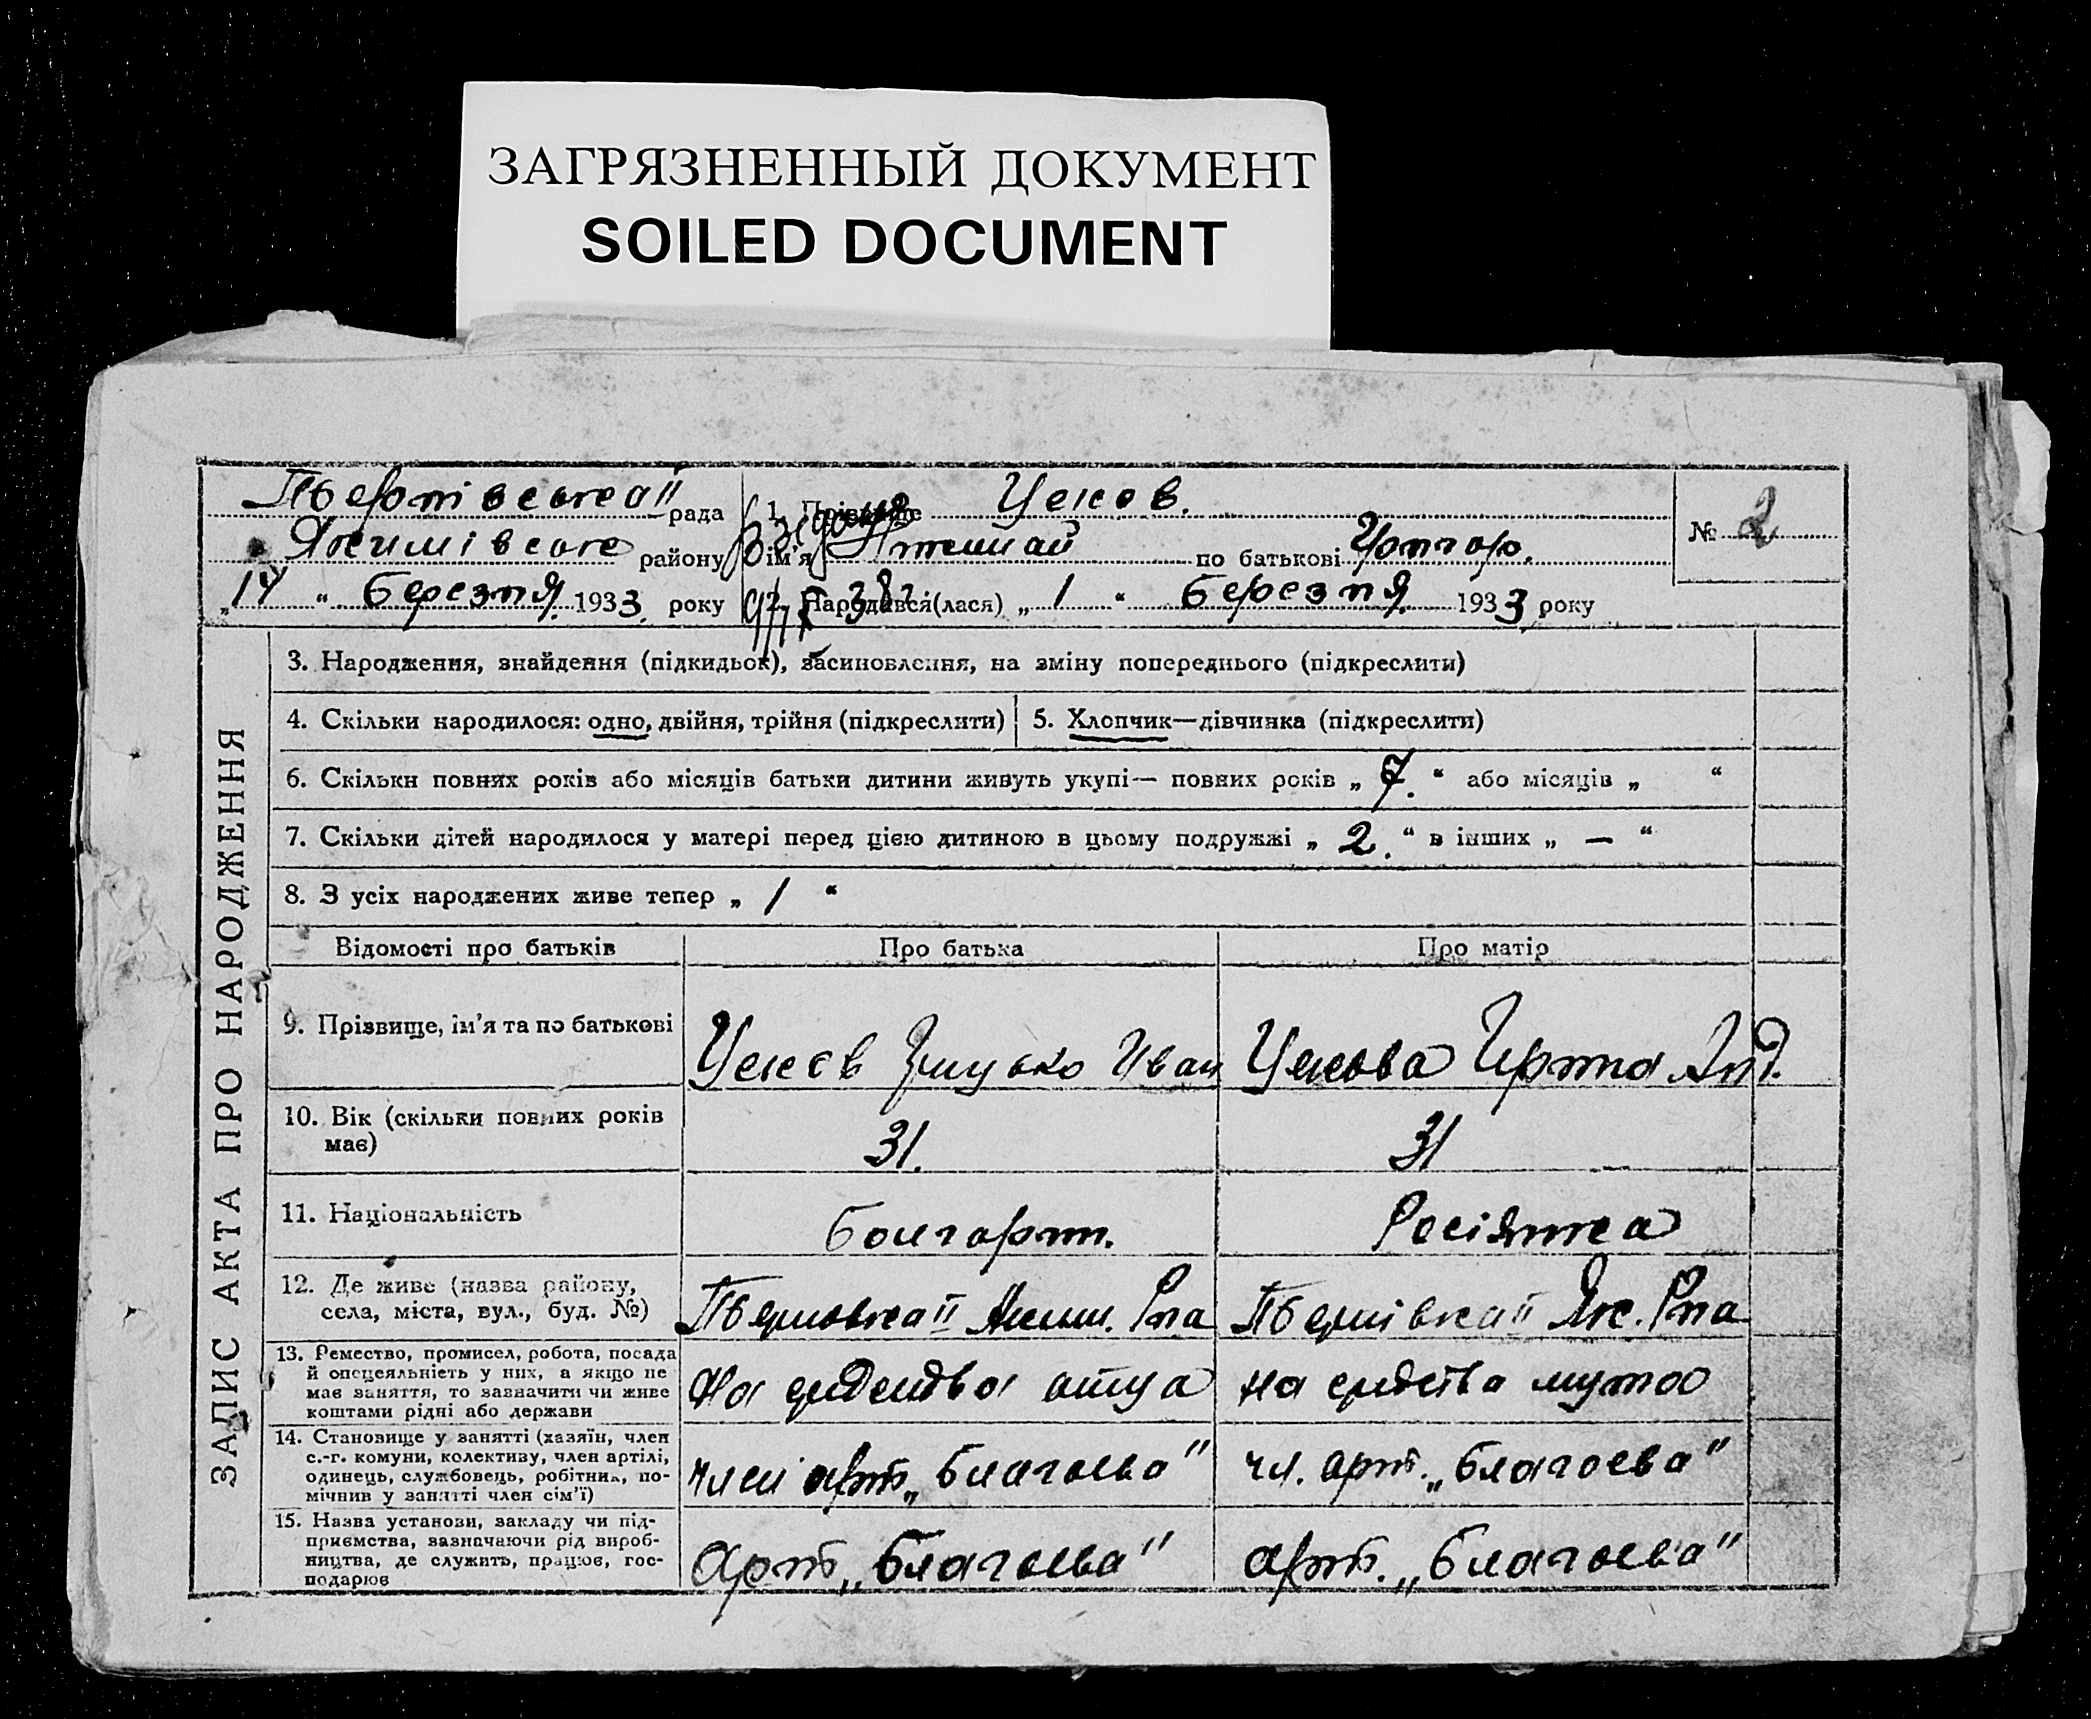 ЗАГРЯЗНЕННЫЙ ДОКУМЕНТ
SOILED DOCUMENT
рада
району
„14 “ Березня 1933. року
1. Прізвище Цеков.
ім'я по батькові
2. Народився (лася) „ 1 “ Березня 1933 року
№ 2
ЗАПИС АКТА ПРО НАРОДЖЕННЯ
3. Народження, знайдення (підкидьок), засиновлення, на зміну попереднього (підкреслити)
4. Скільки народилося: одно, двійня, трійня (підкреслити)
5. Хлопчик—дівчинка (підкреслити)
6. Скільки повних років або місяців батьки дитини живуть укупі— повних років „ 7. “ або місяців „ “
7. Скільки дітей народилося у матері перед цією дитиною в цьому подружжі „ 2. “ в інших „ — “
8. З усіх народжених живе тепер „ 1 “
Відомості про батьків
Про батька
Про матір
9. Прізвище, ім'я та по батькові
Цеков Иван
Цекова
10. Вік (скільки повних років
має)
31.
31
11. Національність
Болгарин.
Росіянка
12. Де живе (назва району,
села, міста, вул., буд. №)
Яким. Рна
Як. Рна
13. Ремество, промисел, робота, посада
й опецеяльність у них, а якщо не
має заняття, то зазначити чи живе
коштами рідні або держави
На отца
на мужа
14. Становище у занятті (хазяїн, член
с.-г. комуни, колективу, член артілі,
одинець, службовець, робітник, по-
мічнив у занятті член сім'ї)
член арт. „Благоева"
чл. арт. „Благоева"
15. Назва установи, закладу чи під-
приємства, зазначаючи рід вироб-
ництва, де служить, працює, гос-
подарює
Арт. „Благоева"
арт. „Благоева"